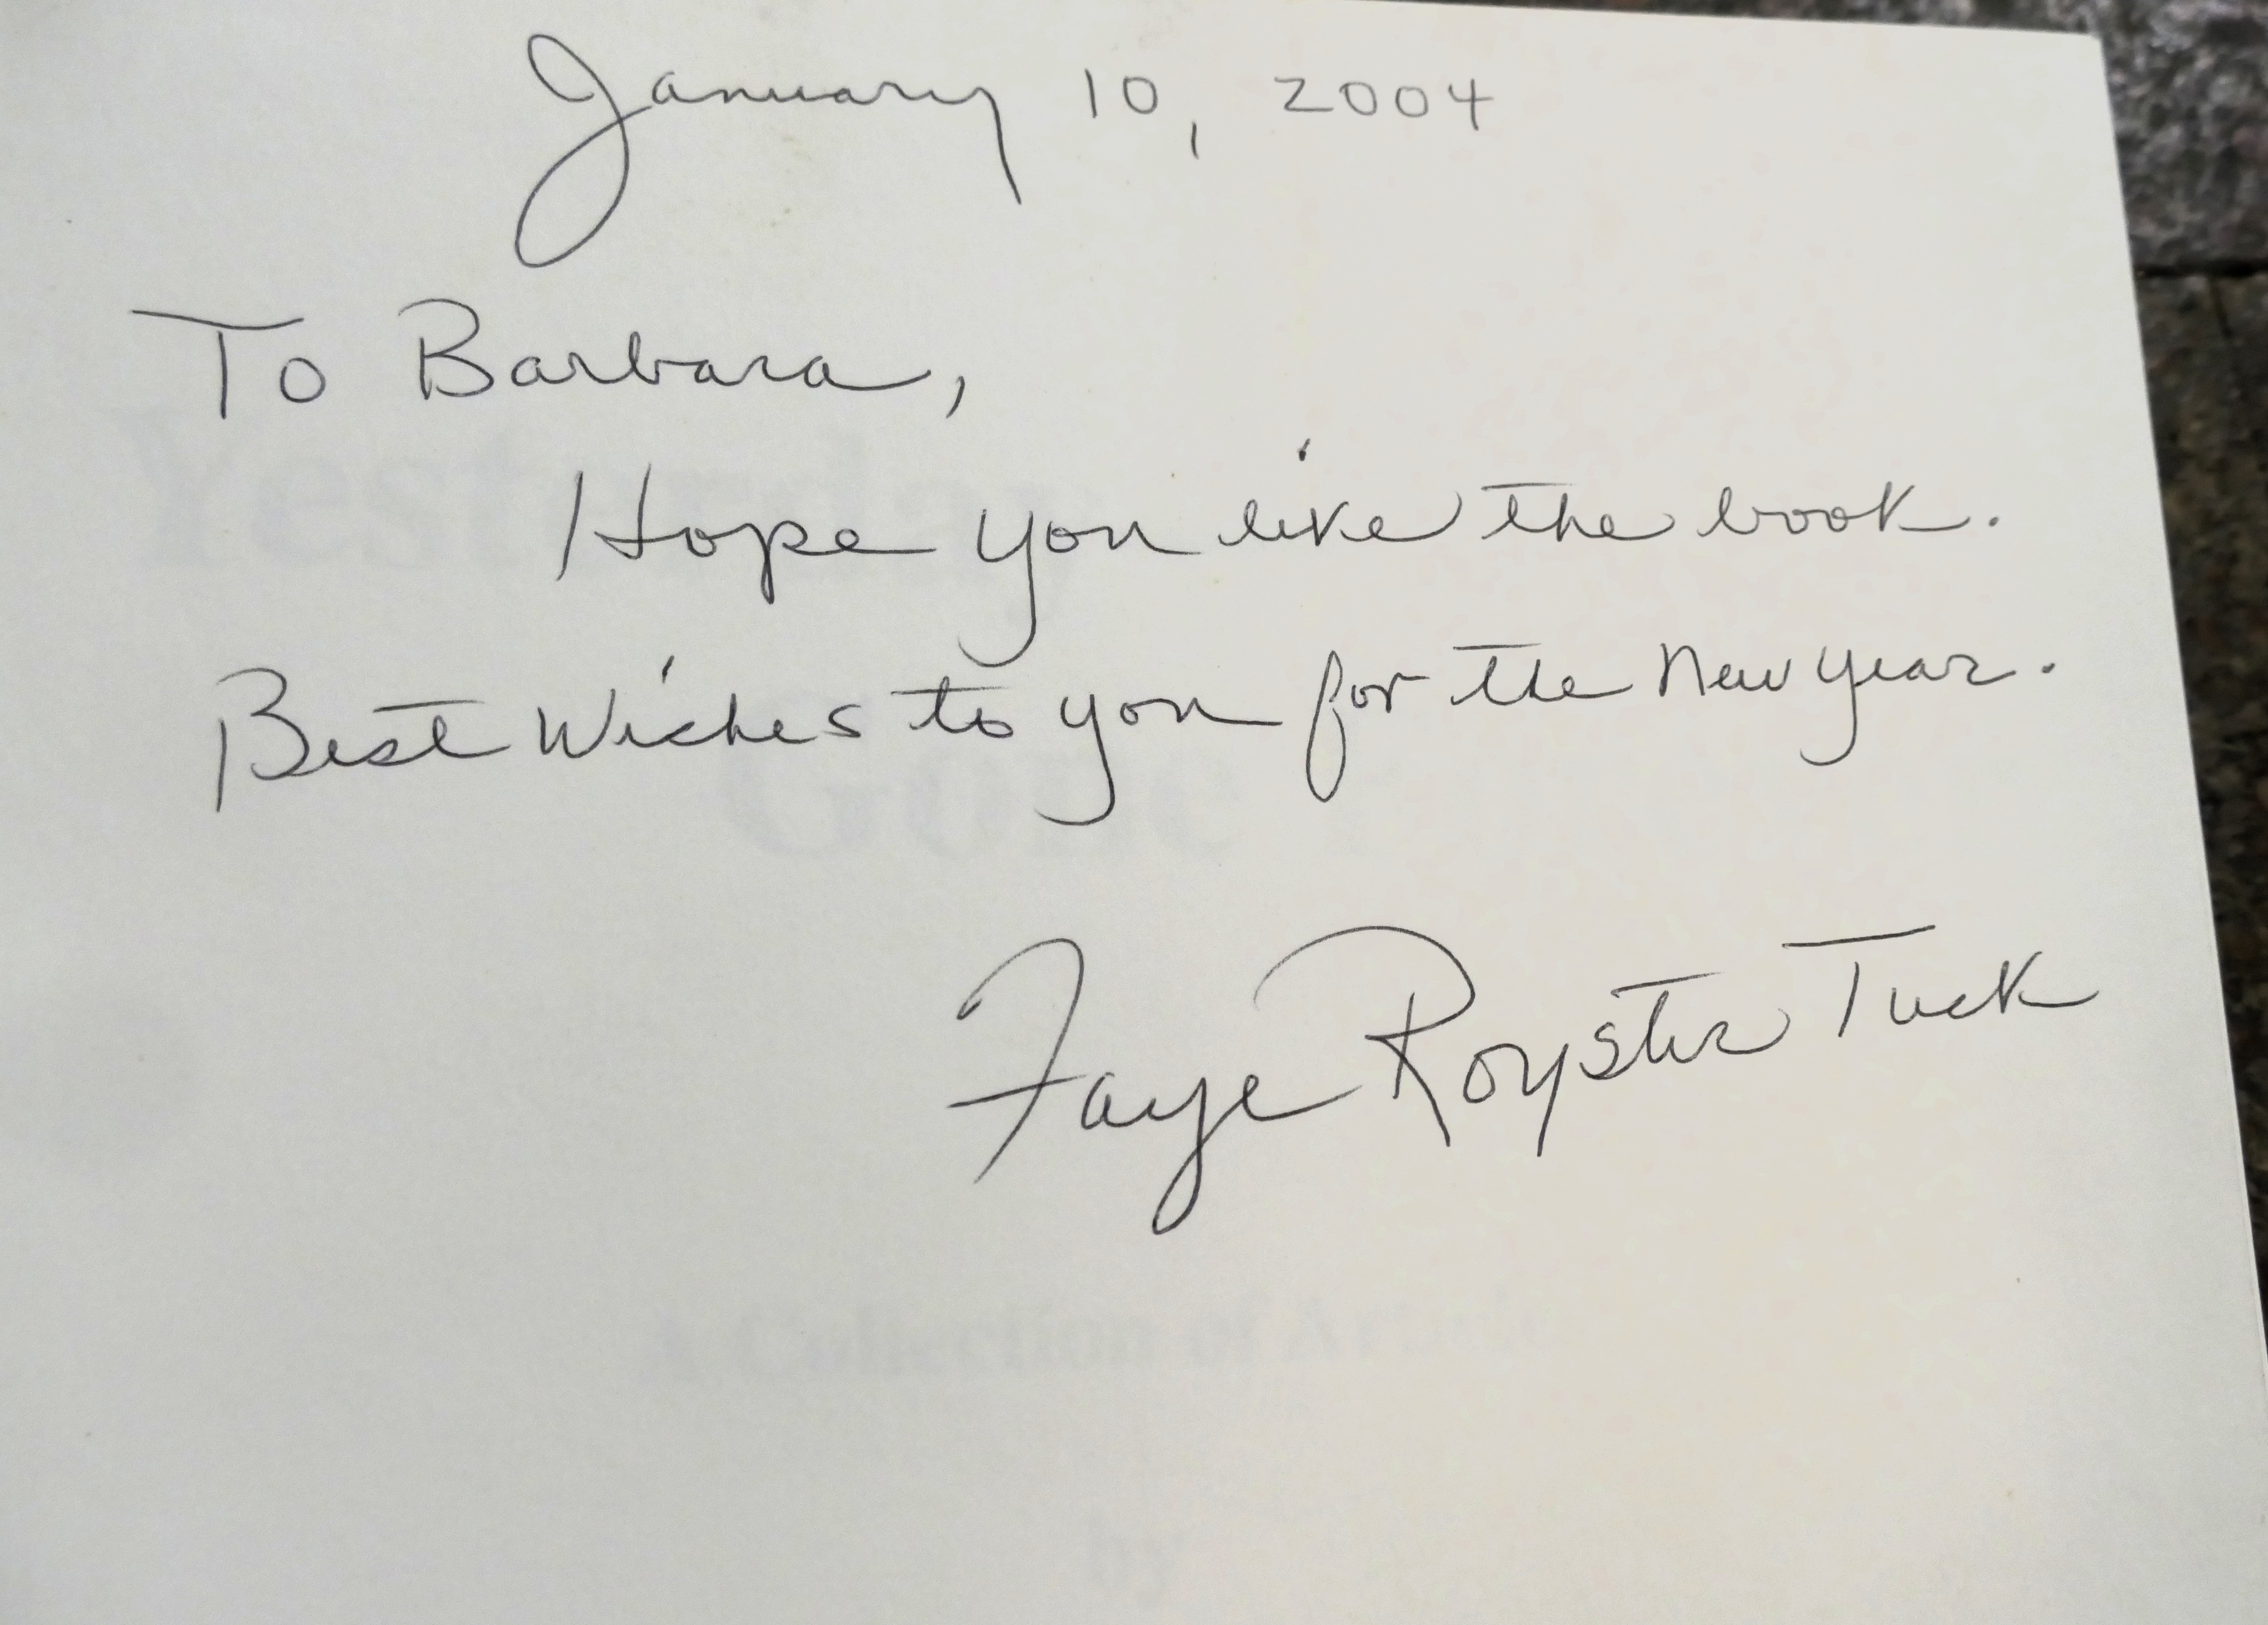 January 10, 2004
To Barbara,
Hope you like the book.
Best Wishes to you for the New Year.
Faye Royster Tuck
Yesterday
Gone
A Collection of Articles
by